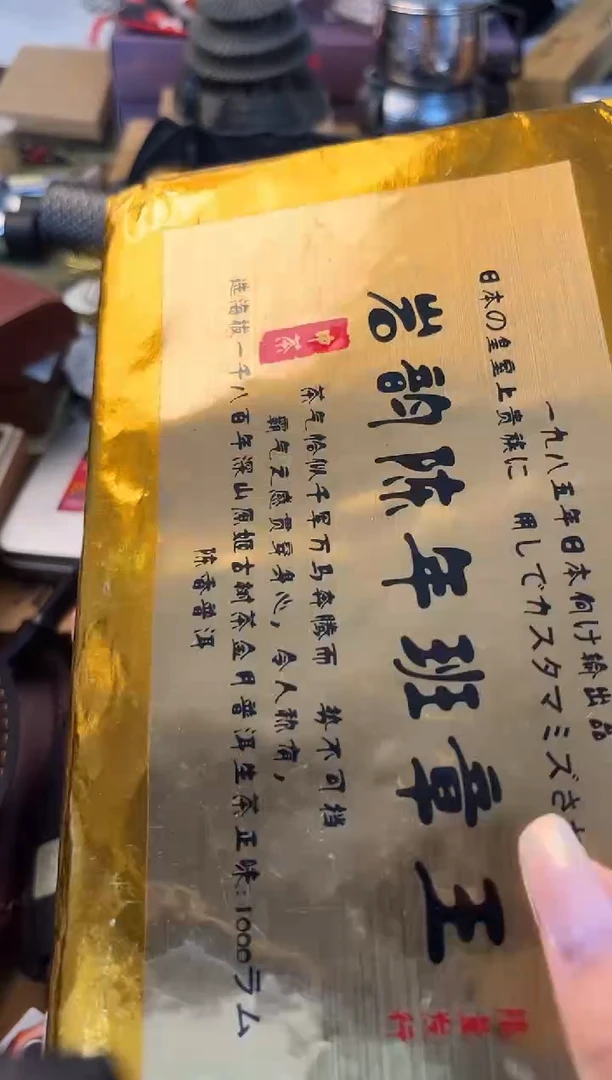 一九八五年日本向け輸出品
日本の皇室上貴族に 用してカスタマミズさ
岩韵陈年班章王
限量发行
印茶
茶气恰似千军万马奔腾而 势不可档
霸气之感贯穿身心，令人称有，
一千八百年深山原姬古树茶金月普洱生茶正味:1000ラム
陈香普洱